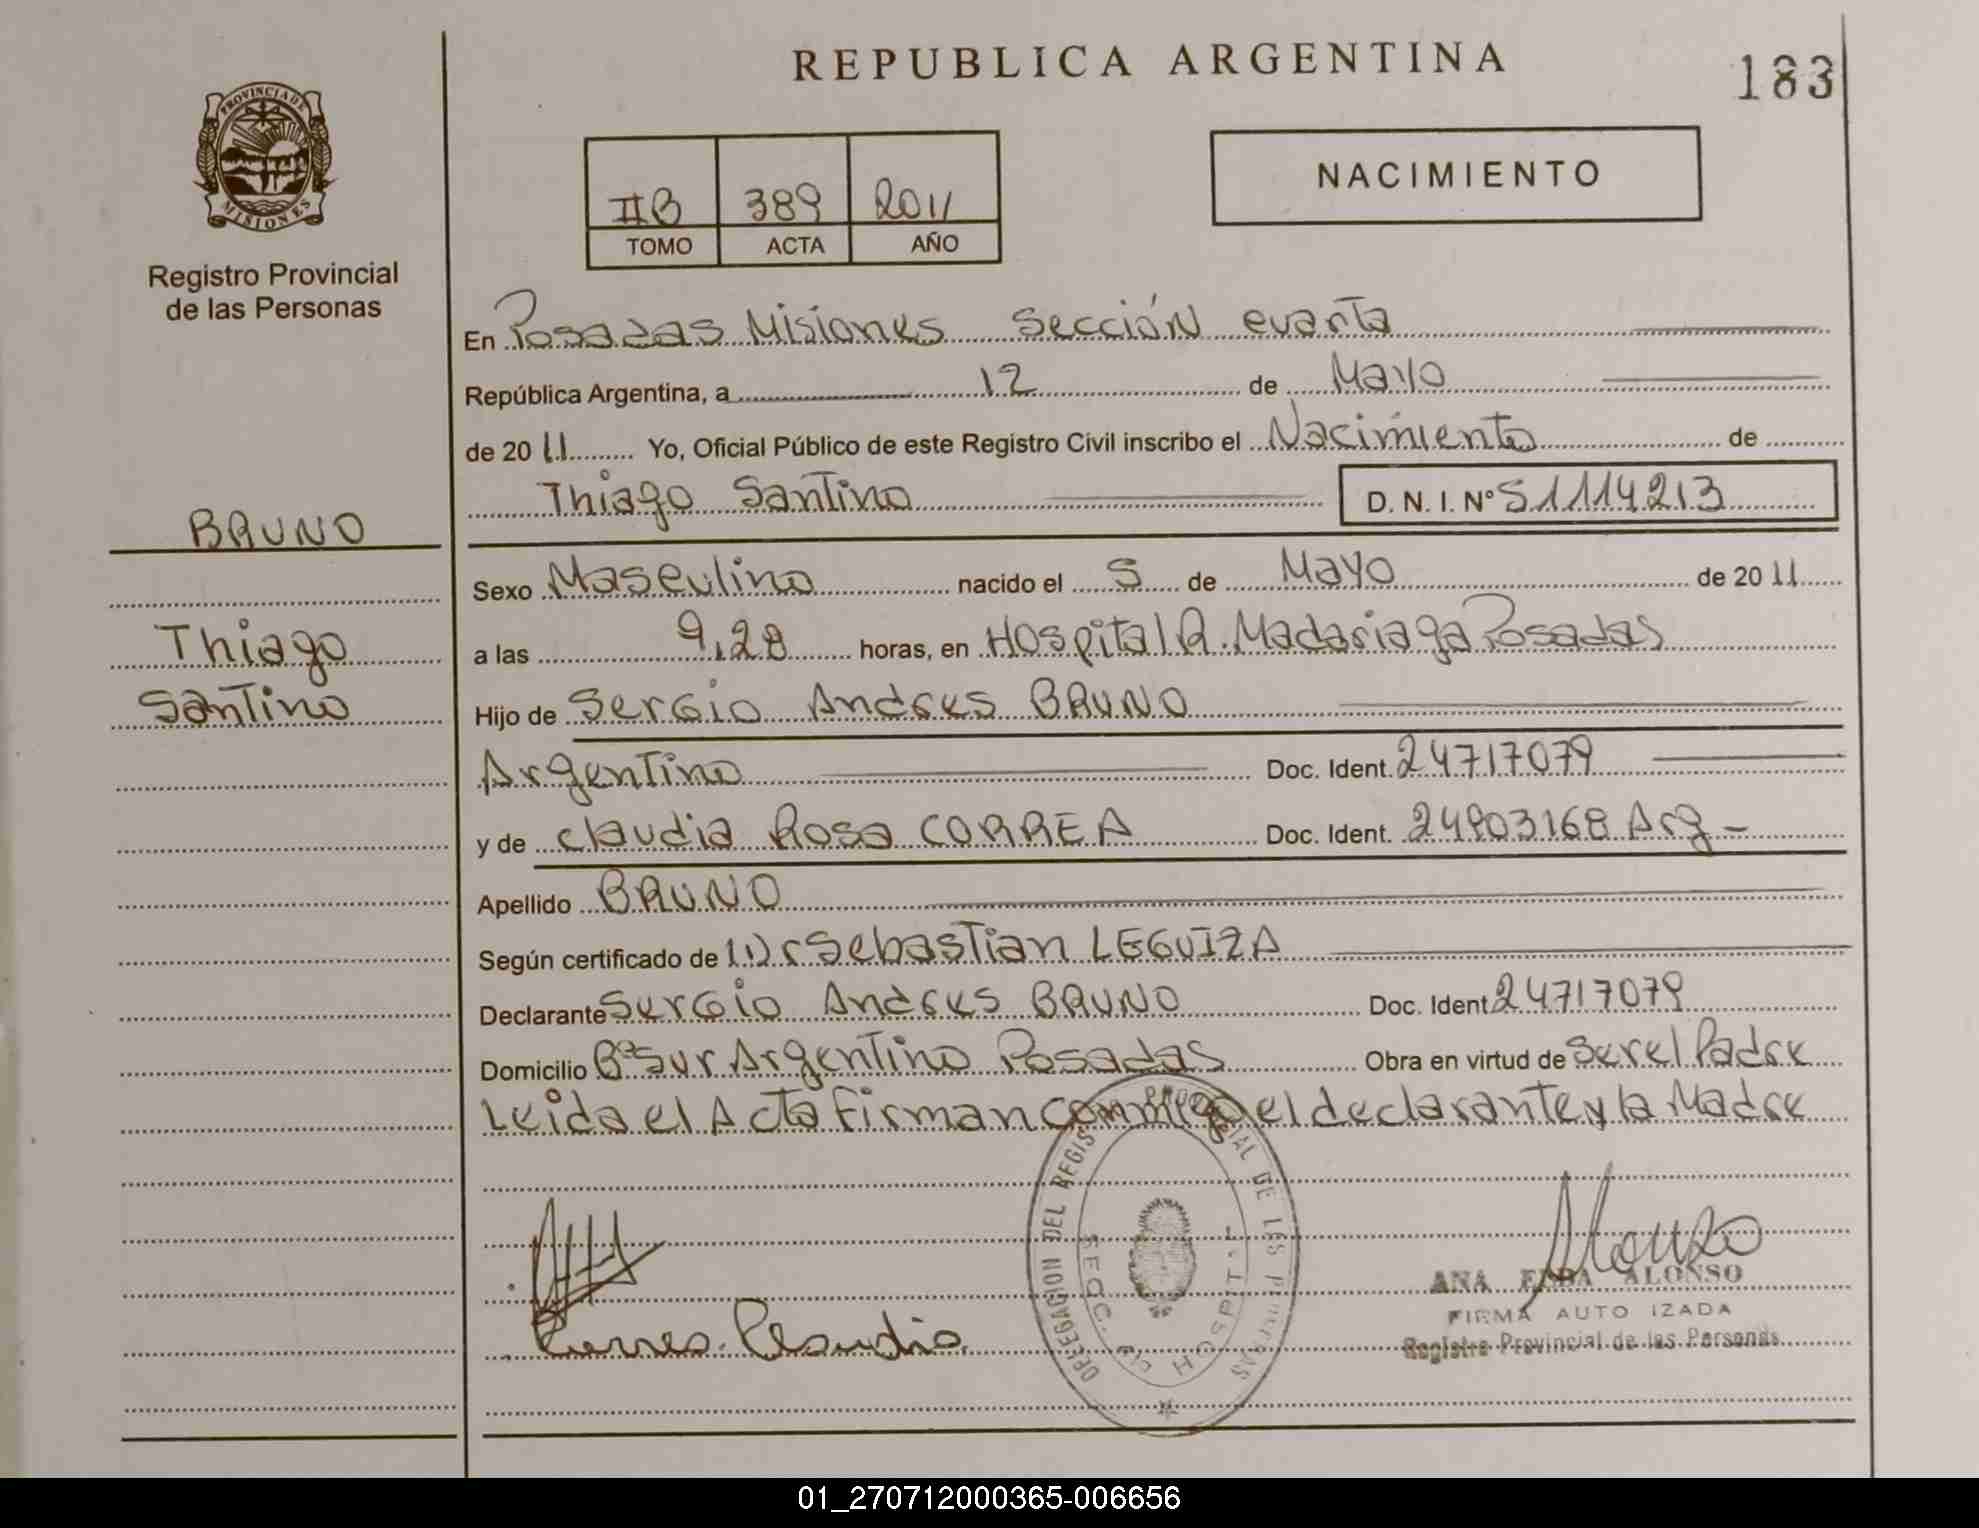 REPUBLICA ARGENTINA
183
PROVINCIA DE
MISIONES
Registro Provincial
de las Personas
IIB 389 2011
TOMO ACTA AÑO
NACIMIENTO
En Posadas Misiones Sección cuarta
República Argentina, a 12 de Mayo
de 2011 Yo, Oficial Público de este Registro Civil inscribo el Nacimiento de
Thiago Santino D. N. I. Nº 51114213
BRUNO
Thiago
Santino
Sexo Masculino nacido el 5 de Mayo de 2011
a las 9,28 horas, en Hospital R. Madariaga Posadas
Hijo de Sergio Andres BRUNO
Argentino Doc. Ident. 24717079
y de Claudia Rosa CORREA Doc. Ident. 24903168 Arg -
Apellido BRUNO
Según certificado de Dr Sebastian LEGUIZA
Declarante Sergio Andres BRUNO Doc. Ident 24717079
Domicilio Bº Sur Argentino Posadas Obra en virtud de Ser el Padre
Leida el Acta firman conmigo el declarante y la Madre
DELEGACION DEL REGIS PROVINCIAL DE LAS PERSONAS
SECC. HOSPIT
Claudia
Alonso
ANA ALONSO
FIRMA AUTO IZADA
Registro Provincial de las Personas
01_270712000365-006656